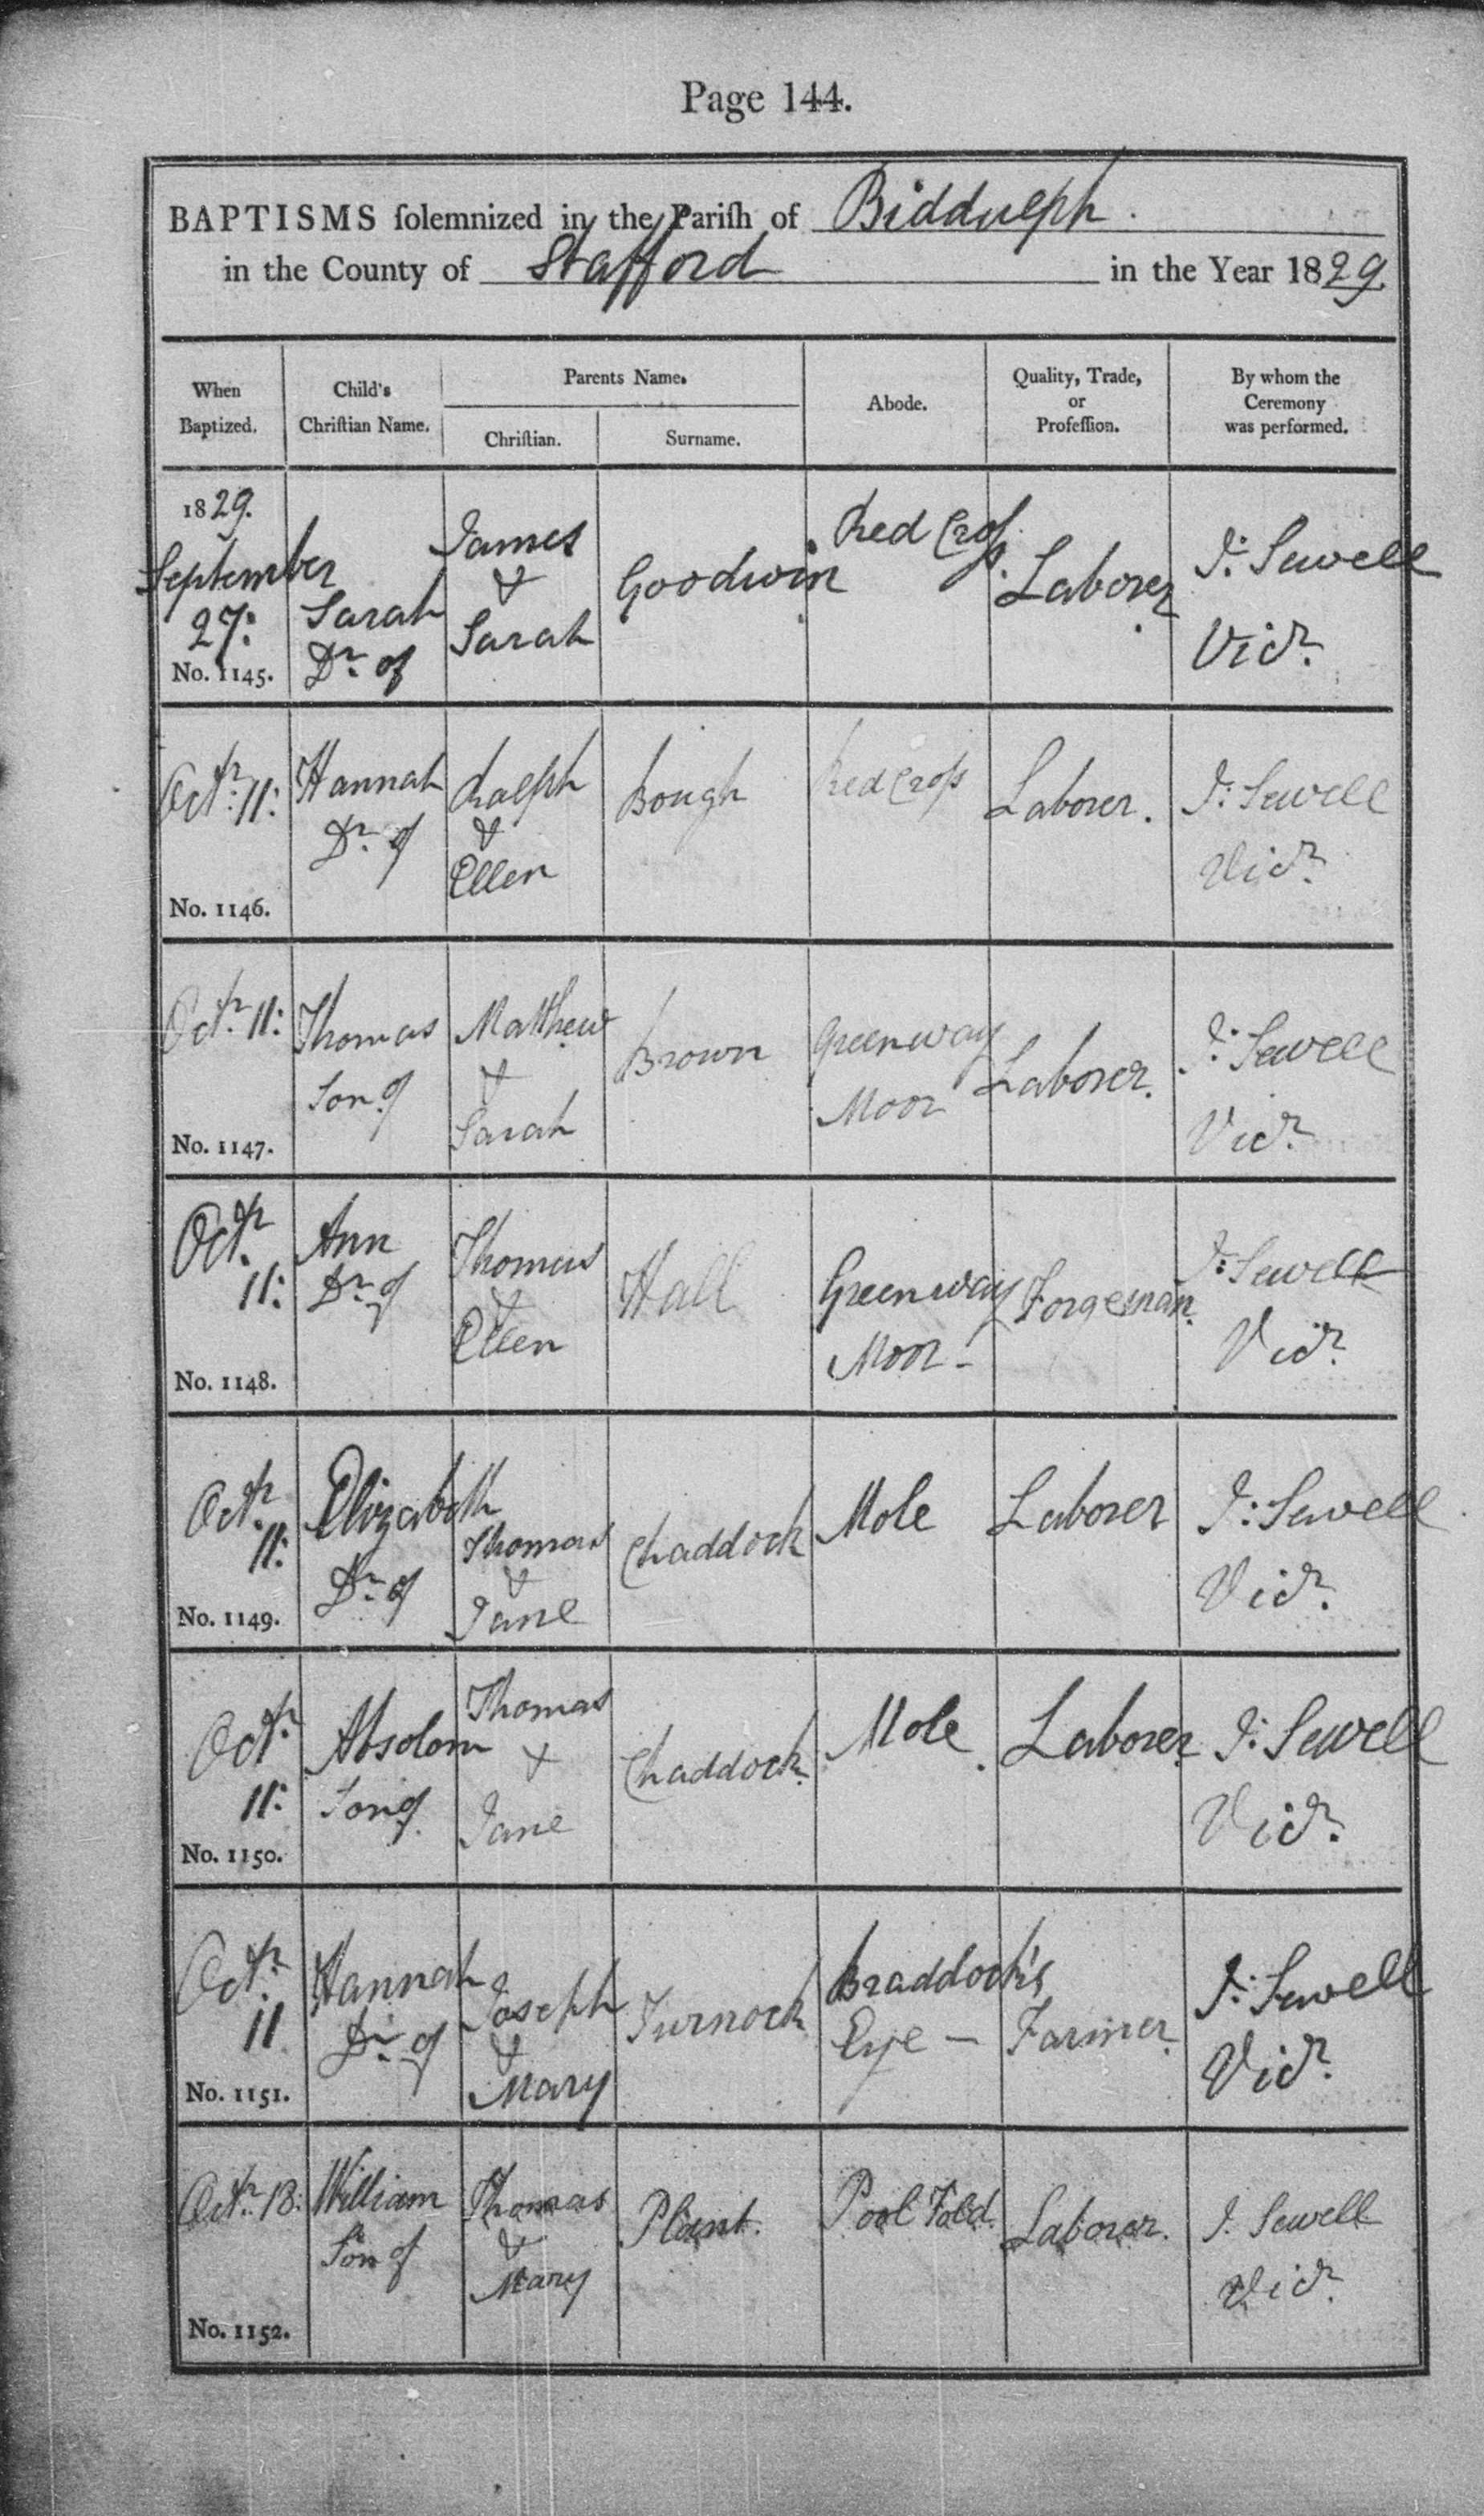 Page 144.
BAPTISMS ſolemnized in the Pariſh of Biddulph.
in the County of Stafford in the Year 1829.
When Baptized.
Child's Chriſtian Name.
Parents Name.
Chriſtian.
Surname.
Abode.
Quality, Trade, or Profeſſion.
By whom the Ceremony was performed.
1829.
September
27:
No. 1145.
Sarah
Dr. of
James
&
Sarah
Goodwin
Red Croſs.
Laborer.
J: Sewell
Vicr.
Octr. 11:
No. 1146.
Hannah
Dr. of
Ralph
&
Ellen
Bough
Red Croſs
Laborer.
J: Sewell
Vicr.
Octr. 11:
No. 1147.
Thomas
Son of
Matthew
&
Sarah
Brown
Greenway
Moor
Laborer.
J: Sewell
Vicr.
Octr.
11:
No. 1148.
Ann
Dr. of
Thomas
&
Ellen
Hall
Greenway
Moor -
Forgeman.
J: Sewell
Vicr.
Octr.
11:
No. 1149.
Elizabeth
Dr. of
Thomas
&
Jane
Chaddock
Mole
Laborer
J: Sewell
Vicr.
Octr.
11:
No. 1150.
Absolom
Son of
Thomas
&
Jane
Chaddock.
Mole.
Laborer
J: Sewell
Vicr.
Octr.
11
No. 1151.
Hannah
Dr. of
Joseph
&
Mary
Turnock
Braddock's
Eye -
Farmer.
J: Sewell
Vicr.
Octr. 18:
No. 1152.
William
Son of
Thomas
&
Mary
Plant.
Pool Fold.
Laborer.
J. Sewell
Vicr.